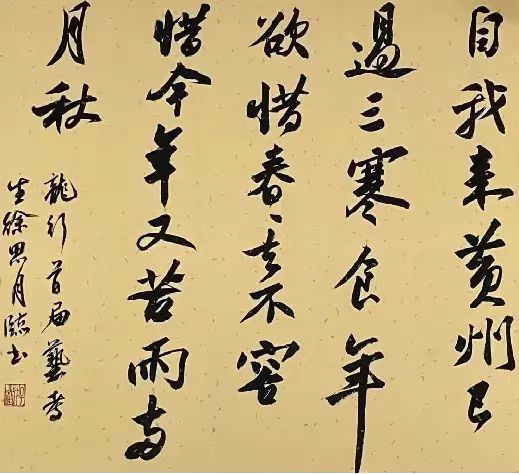 自我来黄州已
過三寒食年
欲惜春々去不容
惜今年又苦雨两
月秋
龍行首届藝考
生徐思月臨书